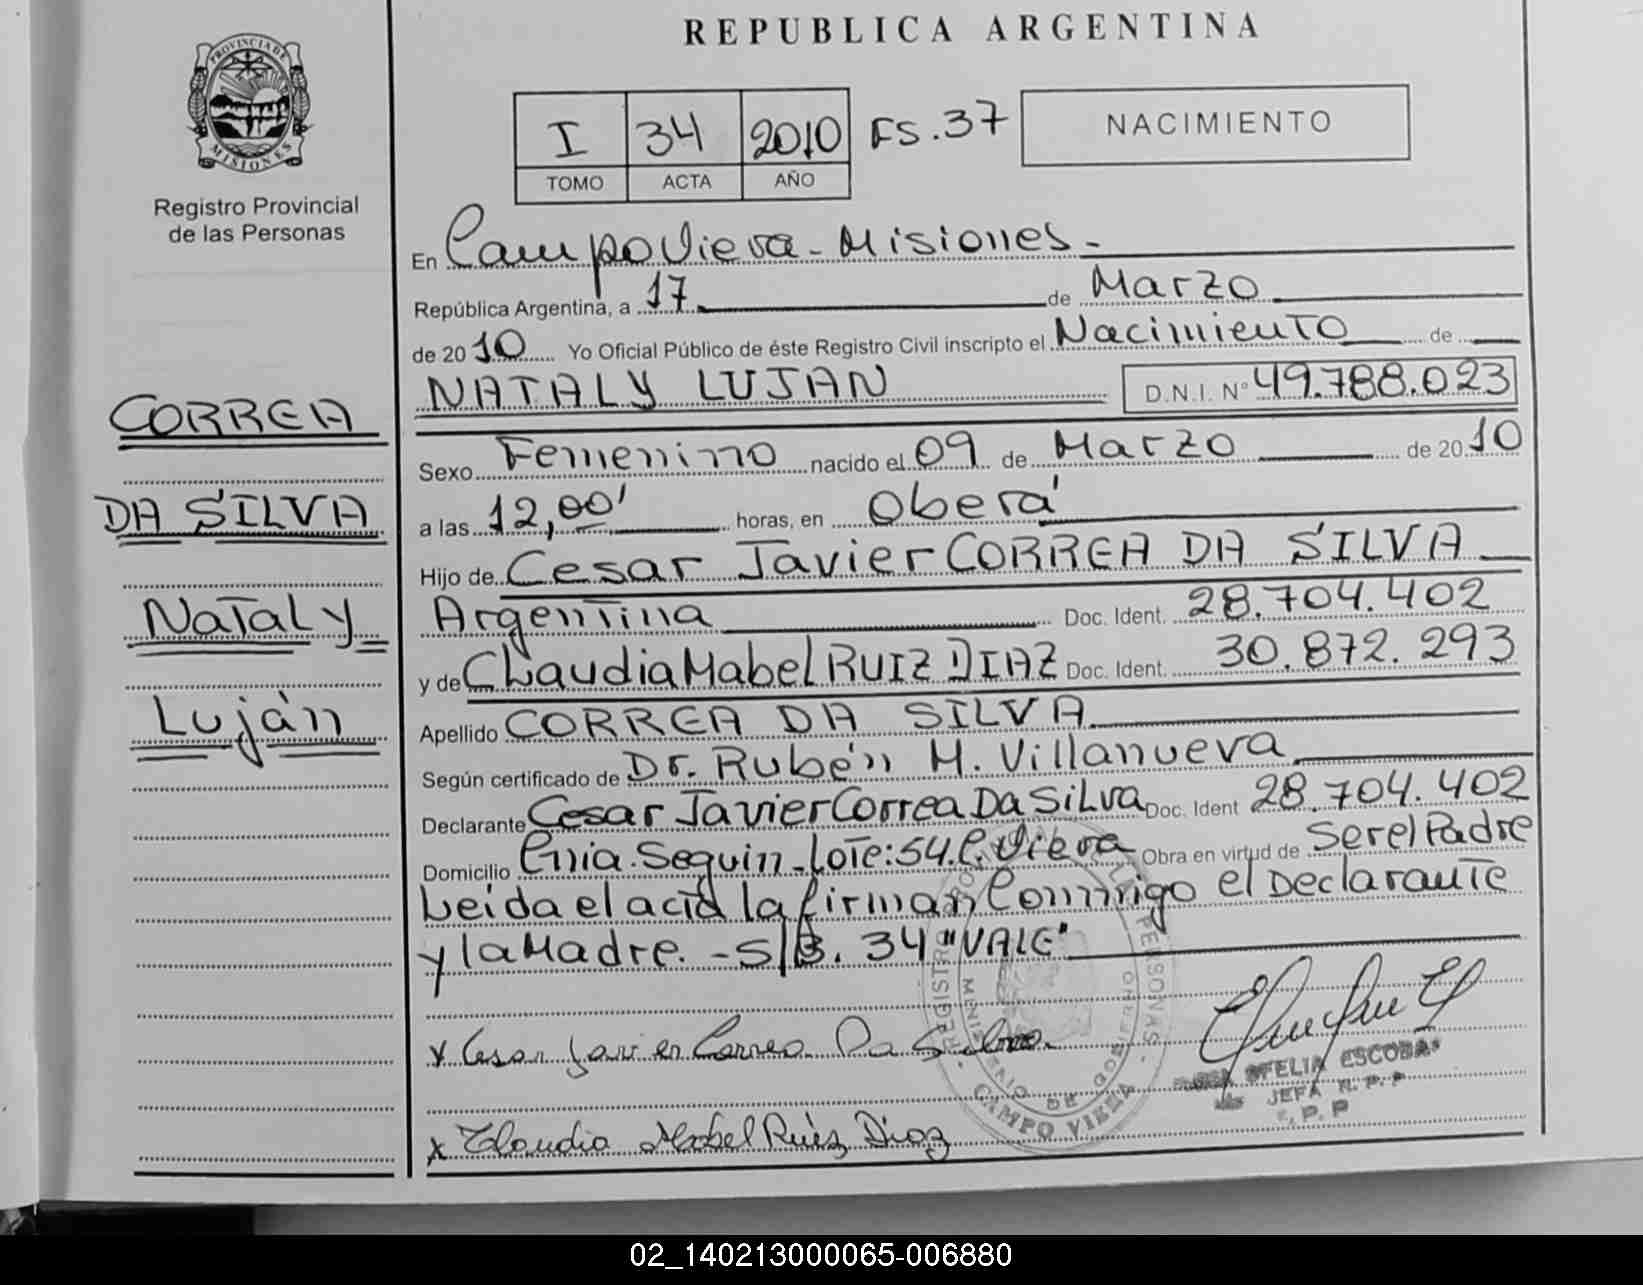 REPUBLICA ARGENTINA
PROVINCIA DE MISIONES
Registro Provincial
de las Personas
I 34 2010 FS.37
TOMO ACTA AÑO
NACIMIENTO
En Campo Viera - Misiones -
República Argentina, a 17 de Marzo
de 2010 Yo Oficial Público de éste Registro Civil inscripto el Nacimiento de
NATALY LUJAN D.N.I. Nº 49.788.023
CORREA
DA SILVA
Nataly
Luján
Sexo Femenino nacido el 09 de Marzo de 2010
a las 12,00' horas, en Oberá
Hijo de Cesar Javier CORREA DA SILVA
Argentina Doc. Ident. 28.704.402
y de Claudia Mabel RUIZ DIAZ Doc. Ident. 30.872.293
Apellido CORREA DA SILVA
Según certificado de Dr. Rubén M. Villanueva
Declarante Cesar Javier Correa Da Silva Doc. Ident 28.704.402
Domicilio Cnia. Seguin Lote: 54. C. Viera Obra en virtud de Ser el Padre
Leida el acta la firman Conmigo el Declarante
y la Madre. - S/B. 34 "VALE"
x Cesar Javier Correa Da Silva
x Claudia Mabel Ruiz Diaz
OFELIA ESCOBAR
JEFA R. P. P
REGISTRO PROVINCIAL DE LAS PERSONAS
MINISTERIO DE GOBIERNO
CAMPO VIERA
02_140213000065-006880